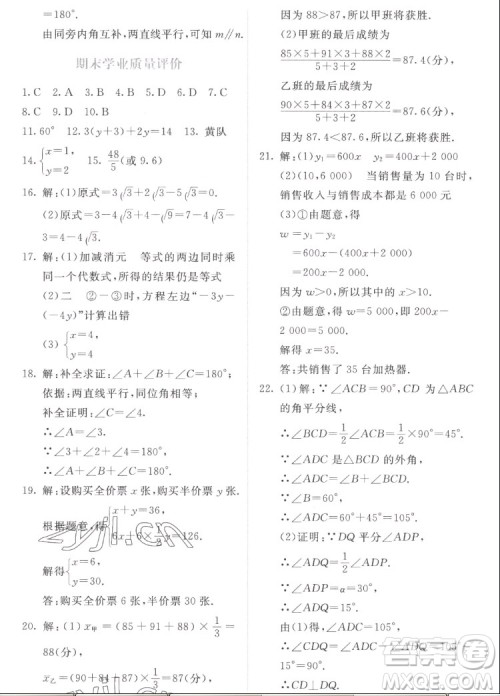 =180°.
由同旁内角互补,两直线平行,可知 m∥n.
期末学业质量评价
1.C 2.A 3.B 4.C 5.B 6.D 7.C
8.C 9.D 10.B
11.60° 12.3(y+3)+2y=14 13.黄队
14.{x=1, y=2 15.48/5(或 9.6)
16.解:(1)原式=3√3+2√3-5√3=0.
(2)原式=3-4√3+√3=3-3√3.
17.解:(1)加减消元 等式的两边同时乘
同一个代数式,所得的结果仍是等式
(2)二 ②-③时,方程左边“-3y-
(-4y)”计算出错
(3){x=4, y=1.
18.解:补全求证:∠A+∠B+∠C=180°.
依据:两直线平行,内错角相等.
补全证明:∠A+∠C=∠4.
∴∠A=∠2.
∵∠3+∠2+∠B=180°,
∴∠A+∠B+∠C=180°.
19.解:设购买全价票 x 张,半价票 y 张,
根据题意,得{x+y=36, 6x+6×1/2y=126.
解得{x=6, y=30.
答:购买全价票 6 张,半价票 30 张.
20.解:(1)x甲=(85+91+88)×1/3
=88(分),
x乙=(90+84+87)×1/3=87(分),
因为 88>87,所以甲班将获胜.
(2)甲班的最后成绩为
(85×5+91×3+88×2)/(5+3+2)=87.4(分),
乙班的最后成绩为
(90×5+84×3+87×2)/(5+3+2)=87.6(分),
因为 87.4<87.6,所以乙班将获胜.
21.解:(1)y₁=600x y₂=400x+2 000
(2)(10,6 000) 当销售量为 10 台时,
销售收入与销售成本都是 6 000 元
(3)①由题意,得
w=y₁-y₂
=600x-(400x+2 000)
=200x-2 000.
因为 w>0,所以其中的 x>10.
②由题意,得 5 000=200x-
2 000.
解得 x=35.
答:共销售了 35 台加热器.
22.(1)解:∵∠ACB=90°,CD 为△ABC
的角平分线,
∴∠BCD=1/2∠ACB=1/2×90°=45°.
∵∠ADC 是△BCD 的外角,
∴∠ADC=∠B+∠BCD.
∴∠ADC=60°+45°=105°.
(2)证明:∵DQ 平分∠ADP,
∴∠ADQ=1/2∠ADP.
∵∠ADP=α=30°,
∴∠ADQ=15°.
由(1)得∠ADC=105°,
∴∠CDQ=∠ADC-∠ADQ=105°-
15°=90°.
∴CD⊥DQ.